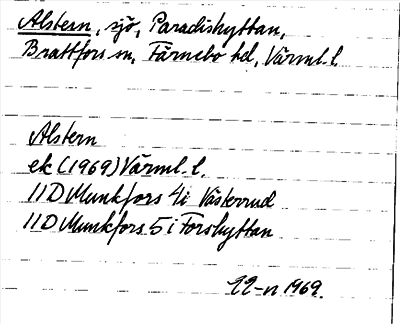 Alstern, sjö, Paradishyttan,
Brattfors sn, Färnebo hd, Värml. l.
Alstern
ek (1969) Värml. l.
11D Munkfors 4i Västerrud
11D Munkfors 5i Forshyttan
1969.